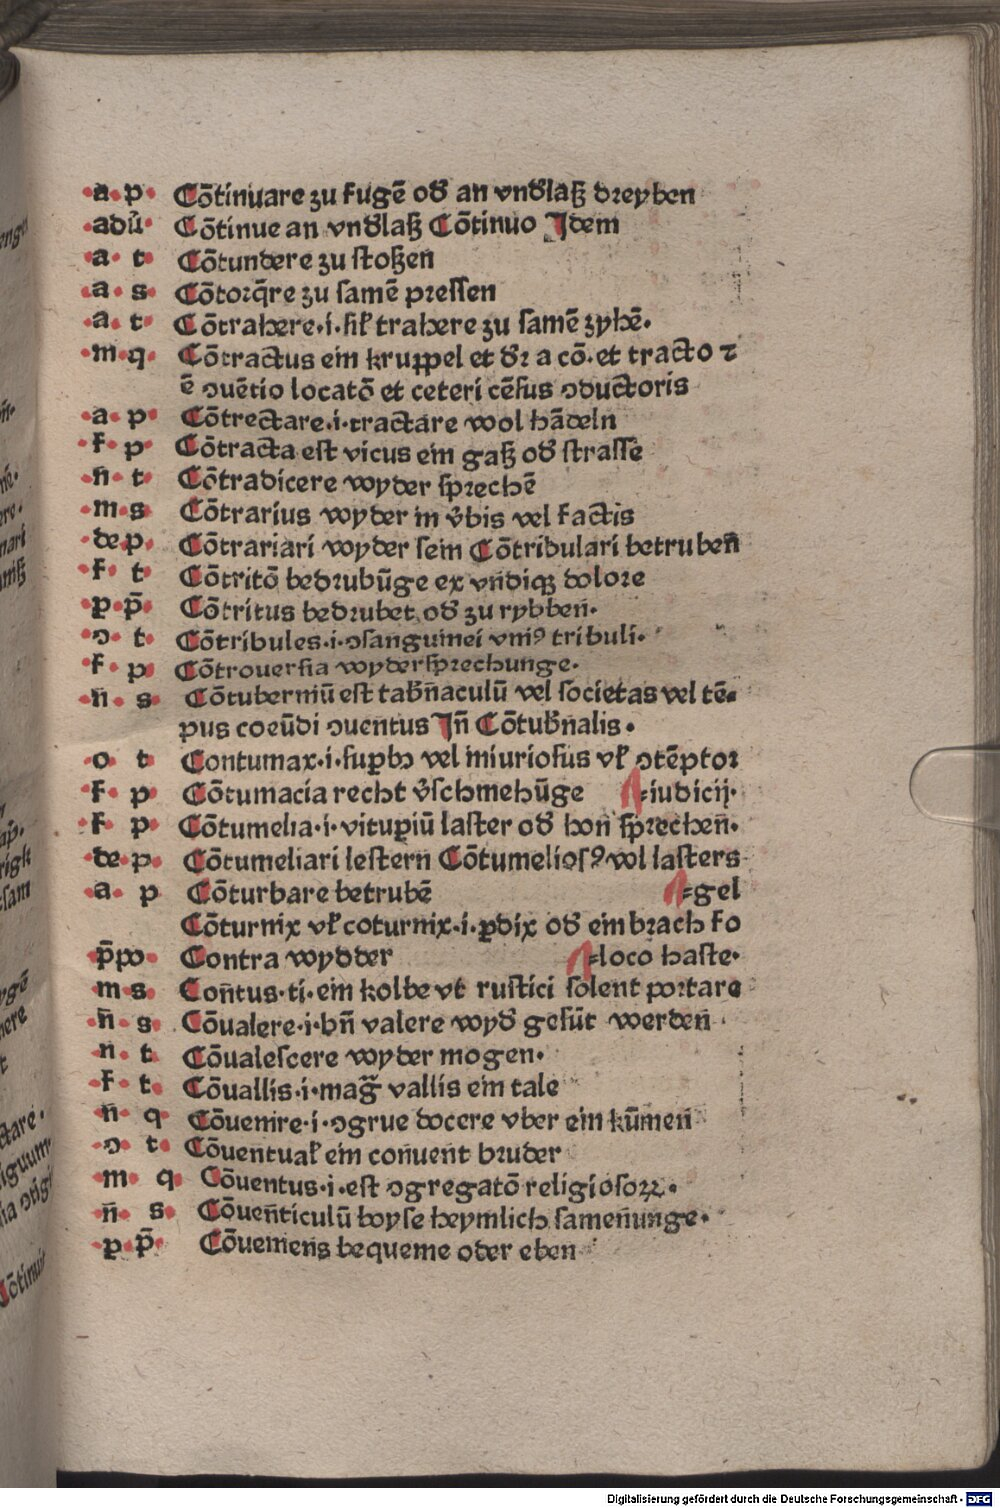 ·a·p· Cōtinuare zu fugē od̕ an vnd̕laß dꝛeyben
·adū· Cōtinue an vnd̕laß Cōtinuo Jdem
·a· t· Cōtundere zu ſtoßen
·a· s· Cōtoꝛq̄re zu ſamē pꝛeſſen
·a· t· Cōtrahere·i·ſil̕ trahere zu ſamē zyhē·
·m·q· Cōtractus ein kruppel et d̕ꝛ a cō·et tracto ⁊
ē ↄuētio locatō et ceteri cēſus ↄductoris
·a· p· Cōtrectare·i·tractare wol hādeln
·f· p· Cōtracta eſt vicus ein gaß od̕ ſtraſſe
·n̄· t· Cōtradicere wyder ſpꝛechē
·m·s· Cōtrarius wyder in v̕bis vel factis
·de·p· Cōtrariari wyder ſein Cōtribulari betruben̄
·f· t· Cōtritō bedꝛubūge ex vndiqꝫ doloꝛe
·p·p̄· Cōtritus bedꝛubet od̕ zu rybben̄·
·ↄ· t· Cōtribules·i·ↄſanguinei vniꝰ tribuli·
·f· p· Cōtrouerſia wyderſpꝛechunge·
·n̄· s· Cōtuberniū eſt tab̕n̄aculū vel ſocietas vel tē-
pus coeūdi ↄuentus Jn̄ Cōtub̕n̄alis·
·o· t· Contumax·i·ſuꝑbꝰ vel iniurioſus vl̕ ↄtēptoꝛ
·f· p· Cōtumacia recht v̕ſchmehūge iudicij·
·f· p· Cōtumelia·i·vituꝑiū laſter od̕ hon̄ ſpꝛechen̄·
·de·p· Cōtumeliari leſtern Cōtumelioſꝰ vol laſters
·a· p Cōturbare betrubē gel
Cōturnix vl̕ coturnix·i·ꝑdix od̕ ein bꝛach fo
p̄po· Contra wydder loco haſte·
m·s· Con̄tus·ti·ein kolbe vt ruſtici ſolent poꝛtare
·n̄· s· Cōualere·i·bn̄ valere wyd̕ geſūt werden̄
·n· t· Cōualeſcere wyder mogen·
·f· t· Cōuallis·i·mag̅ vallis ein tale
·n̄ q· Cōuenire·i·ↄgrue docere vber ein kūmen̄
·ↄ· t· Cōuentual̕ ein con̄uen̄t bꝛuder
·m· q· Cōuentus·i·eſt ↄgregatō religioſoꝝ·
·n̄· s· Cōuen̄ticulū boyſe heymlich ſamen̄unge·
·p·p̄· Cōueniens bequeme oder eben
Digitalisierung gefördert durch die Deutsche Forschungsgemeinschaft · DFG